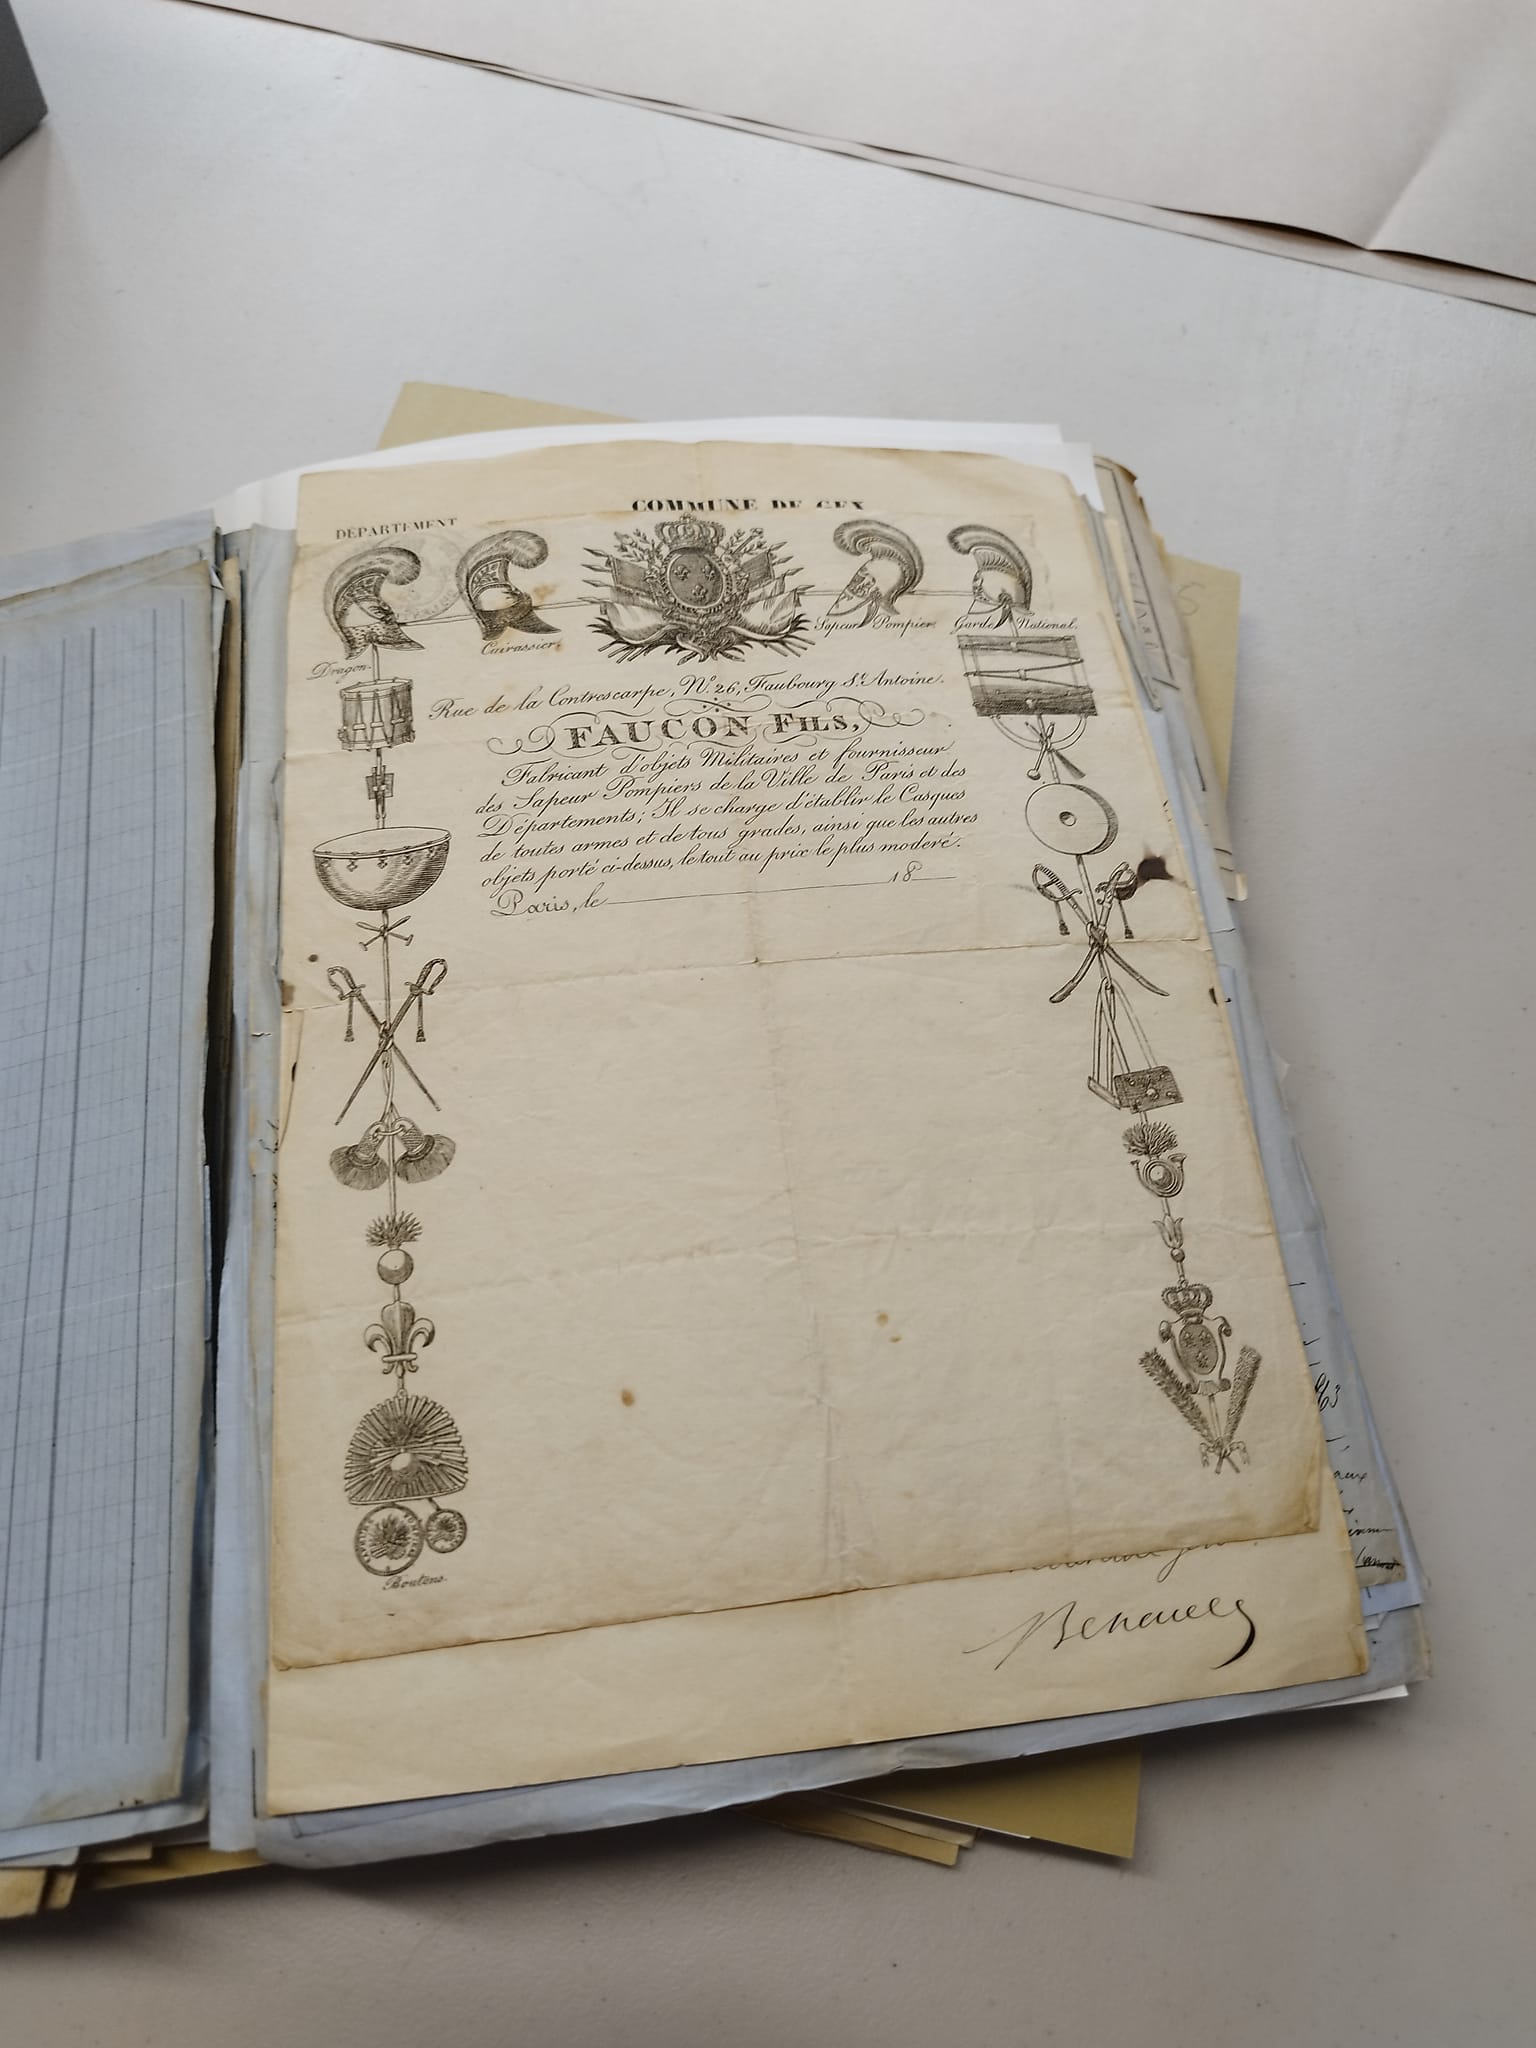 COMMUNE DE GEX
DÉPARTEMENT
Dragon.
Cuirassier.
Sapeur Pompier.
Garde National.
Rue de la Contrescarpe, N.º 26, Faubourg S.t Antoine.
FAUCON FILS,
Fabricant d'objets Militaires et fournisseur
des Sapeur Pompiers de la Ville de Paris et des
Départements; Il se charge d'établir le Casques
de toutes armes et de tous grades, ainsi que les autres
objets porté ci-dessus, le tout au prix le plus modéré.
Paris, le 18
Boutons